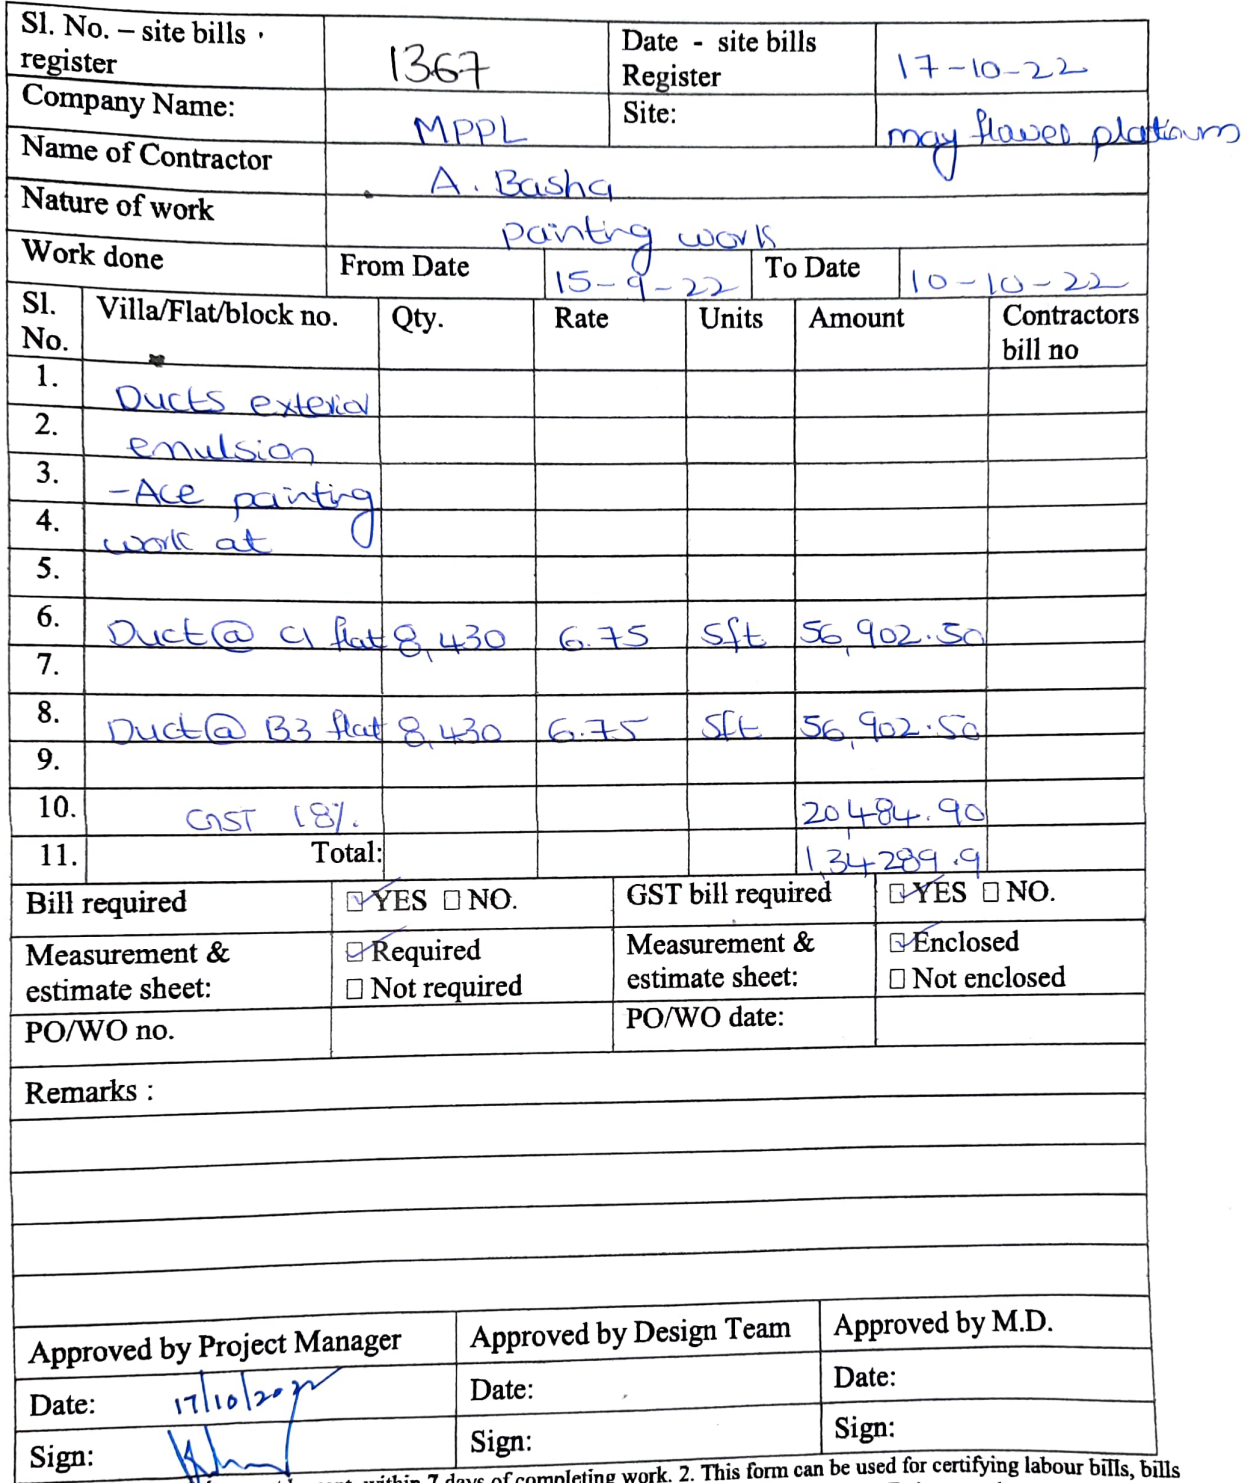 Sl. No. – site bills register 1367 Date - site bills Register 17-10-22
Company Name: MPPL Site: may flower platinum
Name of Contractor A. Basha
Nature of work painting work
Work done From Date 15-9-22 To Date 10-10-22
Sl. No. Villa/Flat/block no. Qty. Rate Units Amount Contractors bill no
1. Ducts exterior
2. emulsion
3. -Ace painting
4. work at
5.
6. Duct@ C1 flat 8,430 6.75 Sft 56,902.50
7.
8. Duct@ B3 flat 8,430 6.75 Sft 56,902.50
9.
10. GST 18%. 20,484.90
11. Total: 1,34,289.9
Bill required ☑ YES ☐ NO. GST bill required ☑ YES ☐ NO.
Measurement & estimate sheet: ☑ Required ☐ Not required Measurement & estimate sheet: ☑ Enclosed ☐ Not enclosed
PO/WO no. PO/WO date:
Remarks :
Approved by Project Manager Approved by Design Team Approved by M.D.
Date: 17/10/2022 Date: Date:
Sign: Sign: Sign:
within 7 days of completing work. 2. This form can be used for certifying labour bills, bills